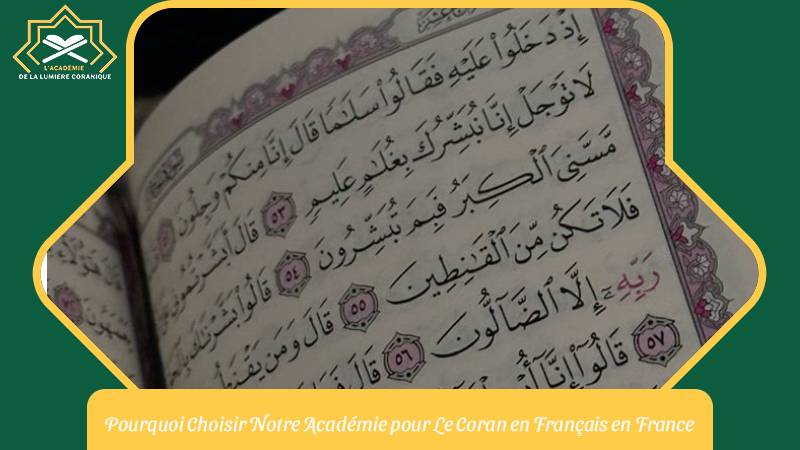 L'ACADÉMIE
DE LA LUMIERE CORANIQUE
إِذْ دَخَلُوا۟ عَلَيْهِ فَقَالُوا۟ سَلَٰمًا قَالَ إِنَّا مِنكُمْ وَجِلُونَ
لَا تَوْجَلْ إِنَّا نُبَشِّرُكَ بِغُلَٰمٍ عَلِيمٍ ٥٣ قَالَ أَبَشَّرْتُمُونِى
مَّسَّنِىَ ٱلْكِبَرُ فَبِمَ تُبَشِّرُونَ ٥٤ قَالُوا۟ بَشَّرْنَٰكَ
فَلَا تَكُن مِّنَ ٱلْقَٰنِطِينَ ٥٥ قَالَ وَمَن يَقْنَطُ
رَبِّهِۦٓ إِلَّا ٱلضَّآلُّونَ ٥٦ قَالَ فَمَا
٥٧ قَالُوٓا۟ إِنَّآ
Pourquoi Choisir Notre Académie pour Le Coran en Français en France